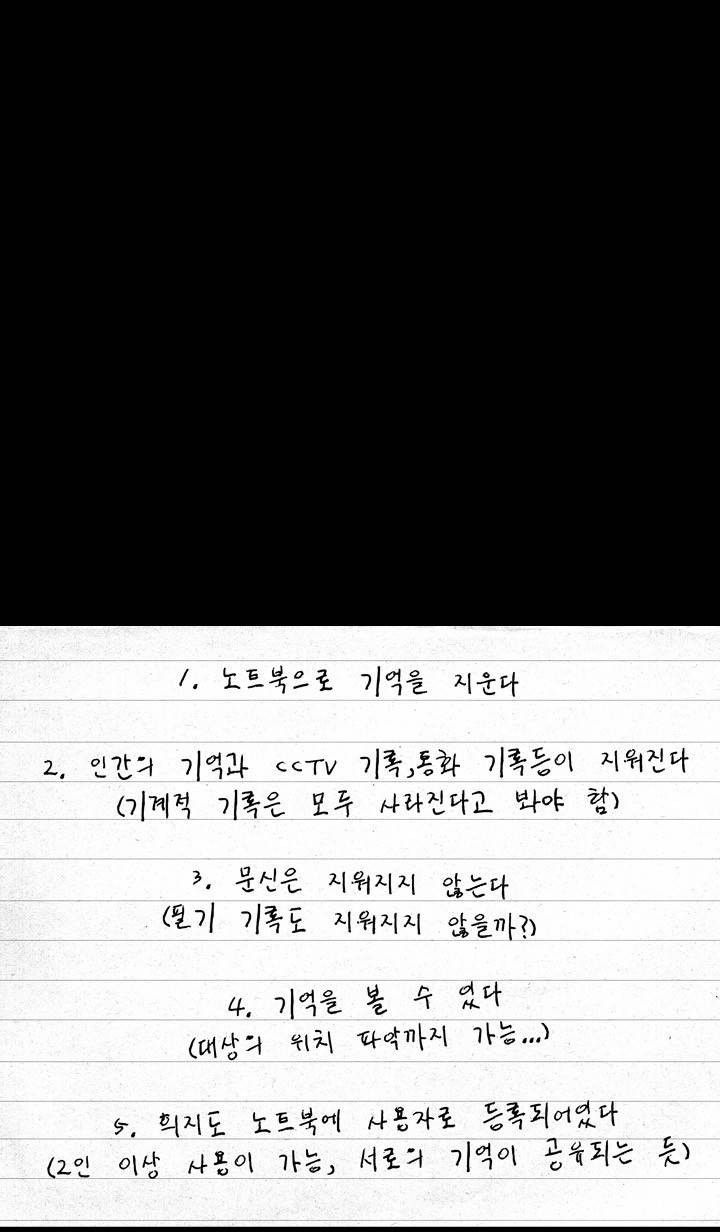 1. 노트북으로 기억을 지운다
2. 인간의 기억과 CCTV 기록,통화 기록등이 지워진다
(기계적 기록은 모두 사라진다고 봐야 함)
3. 문신은 지워지지 않는다
(필기 기록도 지워지지 않을까?)
4. 기억을 볼 수 있다
(대상의 위치 파악까지 가능...)
5. 희지도 노트북에 사용자로 등록되어있다
(2인 이상 사용이 가능, 서로의 기억이 공유되는 듯)